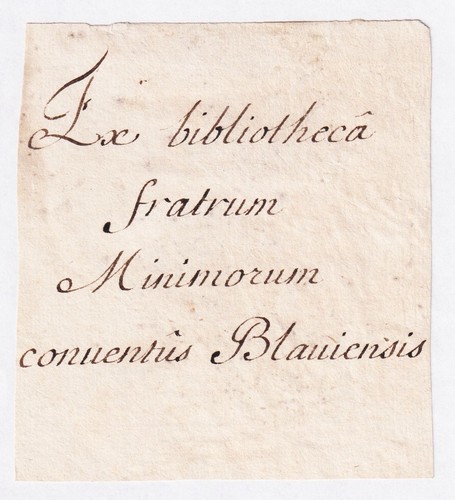 Ex bibliothecâ
fratrum
Minimorum
conuentûs Blauiensis